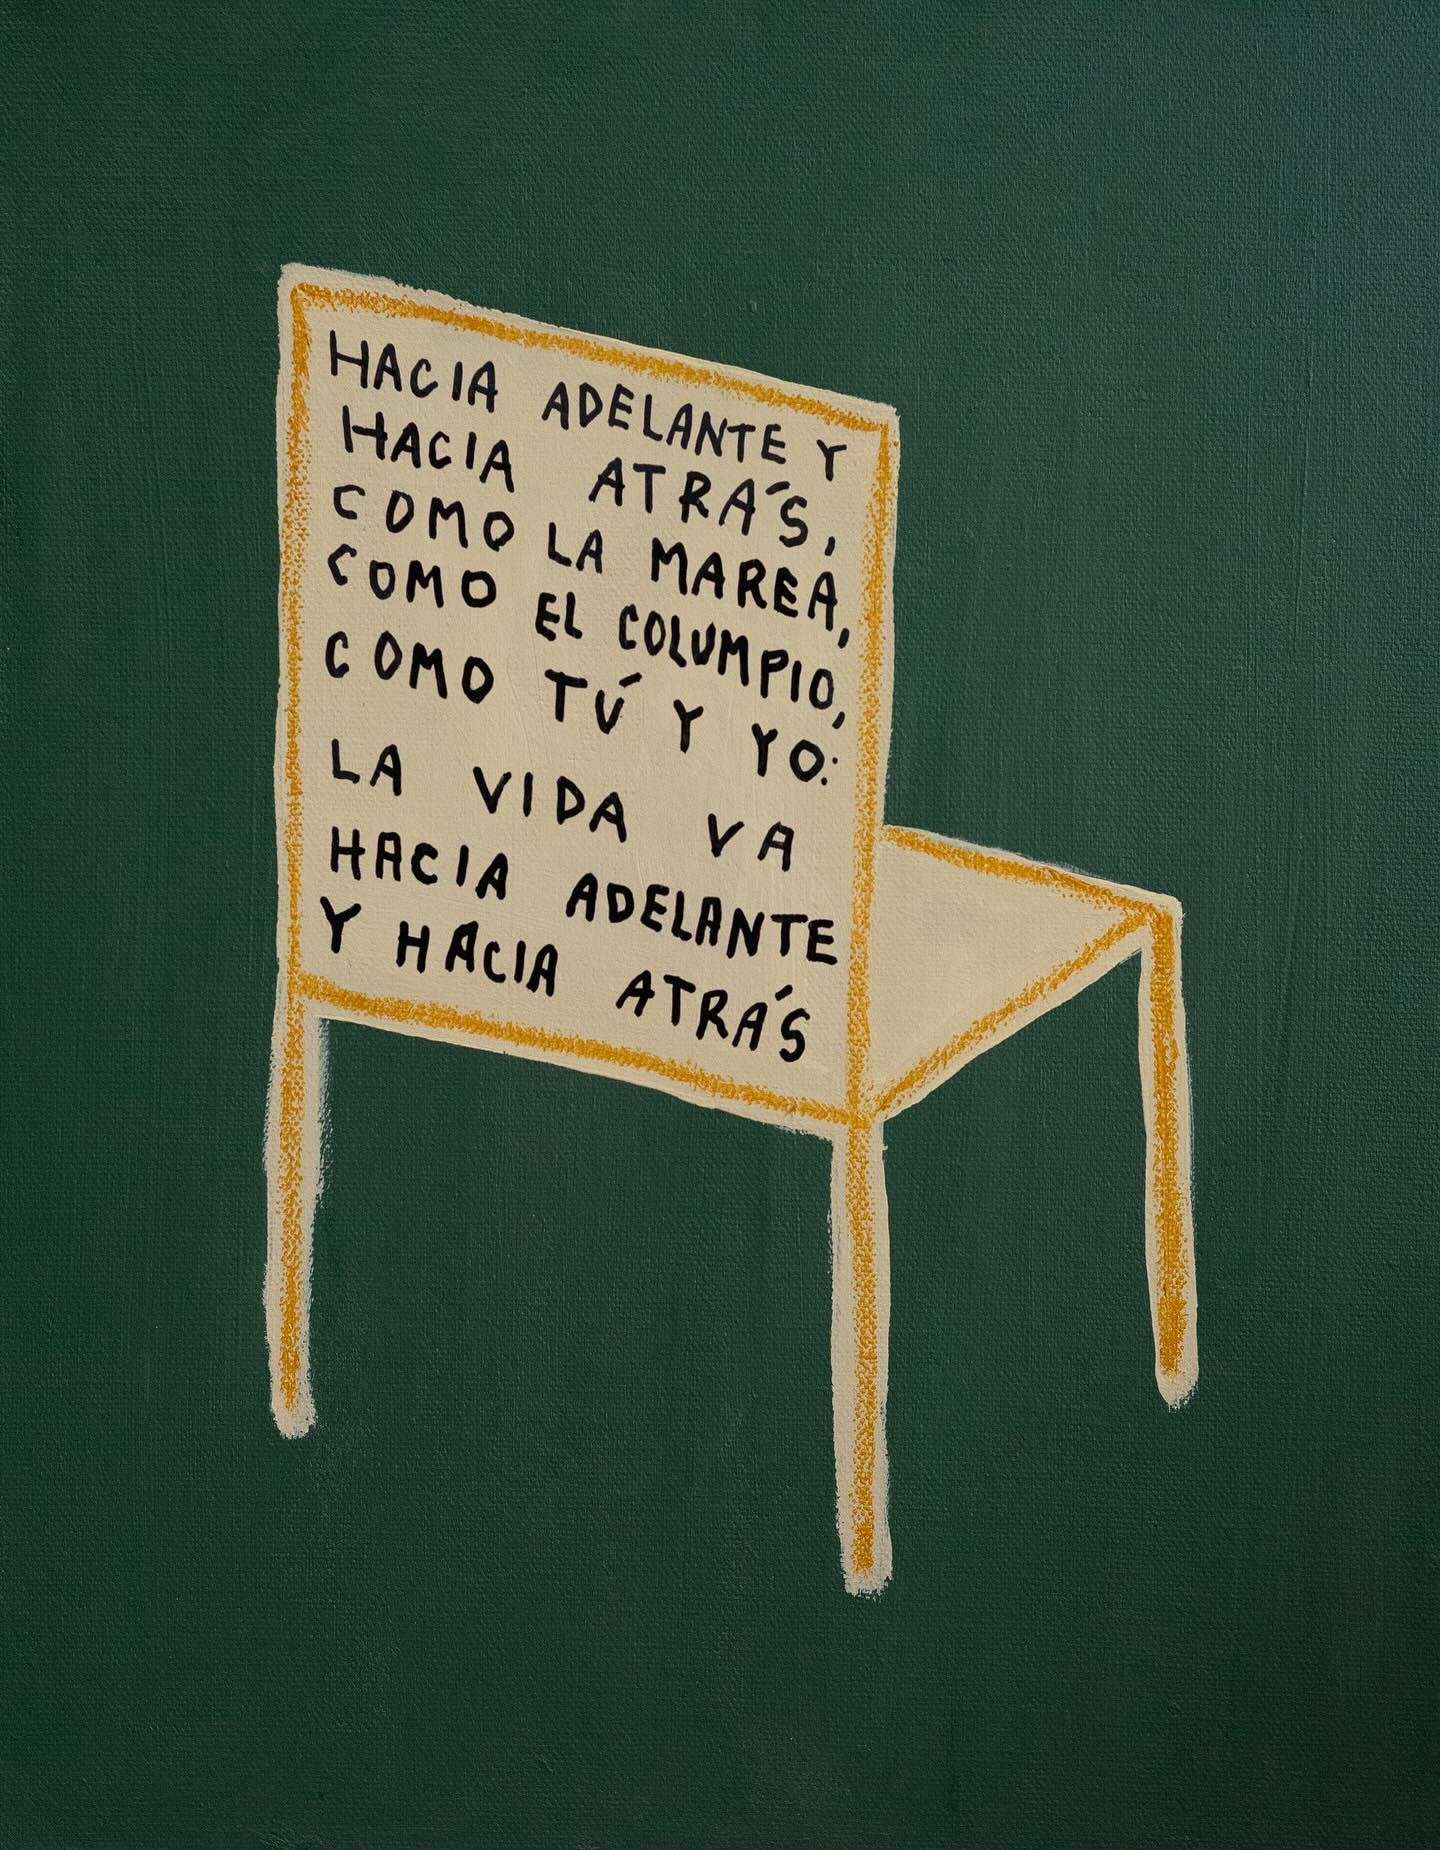 HACIA ADELANTE Y
HACIA ATRÁS,
COMO LA MAREA,
COMO EL COLUMPIO,
COMO TÚ Y YO:
LA VIDA VA
HACIA ADELANTE
Y HACIA ATRÁS